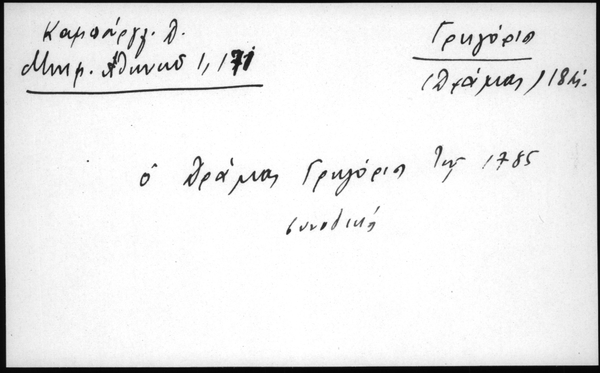 Καμπούργλ. Δ.
Μνημ. Ἀθηνῶν 1, 171
Γρηγόριος
(Δράμας) 18 αἰ.
ὁ Δράμας Γρηγόριος 1785
συνοδικὴ